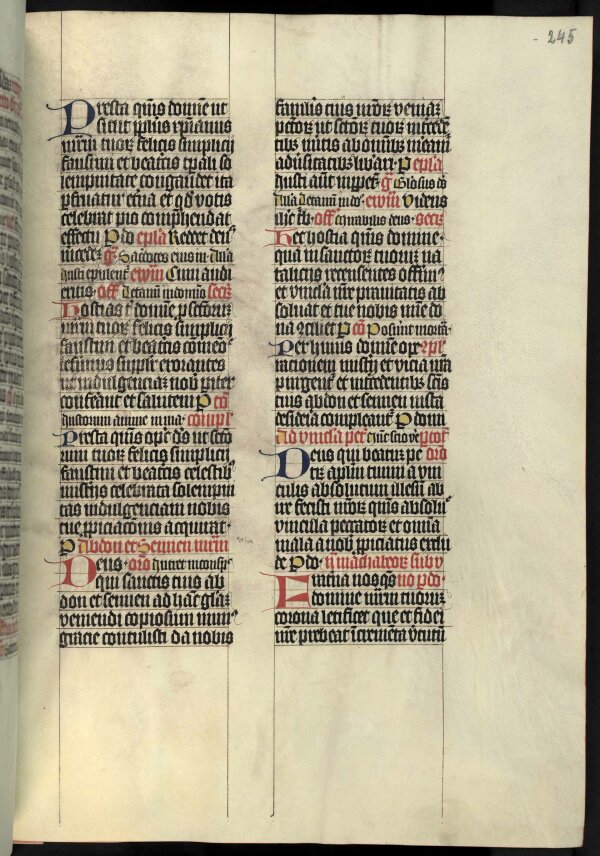 245
Presta quis domine ut
sicut populus christianus
martirum tuorum felicis simplicii
faustini et beatricis temporali so
lempnitate congaudet ita
perfruatur eterna et quod votis
celebrat pio comprehendat
effectu Per do epla Reddet deus
merce Gr Sacerdotes eius in Alla
iusti epulent ewm Cum audi
eritis off Letamini in domino secr
Hostias tibi domine pro sanctorum
martirum tuorum felicis simplicii
faustini et beatricis commemo
ut indulgenciam nobis pariter
conferant et salutem Per co
Iustorum anime in ma compl
Presta quis omps deus ut sancto
rum tuorum felicis simplicii
faustini et beatricis celestibus
misteriis celebrata solempni
tas indulgenciam nobis
tue propiciacionis acquirat
P Abdon et Sennen mrm
Deus oro Intret in conspectu
qui sanctis tuis ab
don et sennen ad hanc gloriam
veniendi copiosum mun
gracie contulisti da nobis
famulis tuis nostrorum veniam
peccatorum ut sanctorum tuorum interceden
tibus meritis ab omnibus mereamur
adversitatibus liberari Per epla
Iusti autem in perpet Gr Gloriosus do
Alla Letamini in do ewm Videns
off mirabilis deus secr
Hec hostia quis domine
quam in sanctorum tuorum na
taliciis recensentes offerimus
et vincula nostre pravitatis ab
solvat et tue nobis misericordie do
na conciliet Per co Posuerunt mortalia
Per huius domine ope compl
racionem misterii et vicia nostra
purgentur et intercedentibus sanctis
tuis abdon et sennen iusta
desideria compleantur Per domi
Ad vincla petri
Deus qui beatum pe oro
trum apostolum tuum a vin
culis absolutum illesum ab
ire fecisti nostrorum quis absolve
vincula peccatorum et omnia
mala a nobis propiciatus exclu
de Per do machabeorum
Fraterna nos quis
domine martirum tuorum
corona letificet que et fidei
nostre prebeat incrementa virtutum